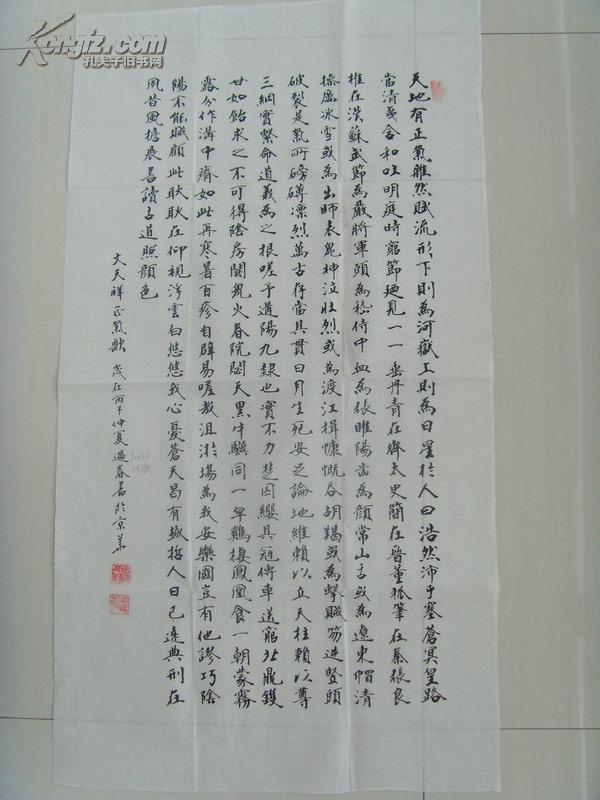 Kongfz.com
孔夫子旧书网
天地有正氣雜然賦流形下則為河嶽上則為日星於人曰浩然沛乎塞蒼冥皇路
當清夷含和吐明庭時窮節迺見一一垂丹青在齊太史簡在晉董狐筆在秦張良
椎在漢蘇武節為嚴將軍頭為嵇侍中血為張睢陽齒為顏常山舌或為遼東帽清
操厲冰雪或為出師表鬼神泣壯烈或為渡江楫慷慨吞胡羯或為擊賊笏逆豎頭
破裂是氣所磅礡凜烈萬古存當其貫日月生死安足論地維賴以立天柱賴以尊
三綱實繫命道義為之根嗟予遘陽九隸也實不力楚囚纓其冠傳車送窮北鼎鑊
甘如飴求之不可得陰房闃鬼火春院閟天黑牛驥同一皁鷄棲鳳凰食一朝蒙霧
露分作溝中瘠如此再寒暑百疹自辟易嗟哉沮洳場為我安樂國豈有他謬巧陰
陽不能賊顧此耿耿在仰視浮雲白悠悠我心憂蒼天曷有極哲人日已遠典刑在
夙昔風檐展書讀古道照顏色
文天祥正氣歌 歲在丙子仲夏 過春書於京華